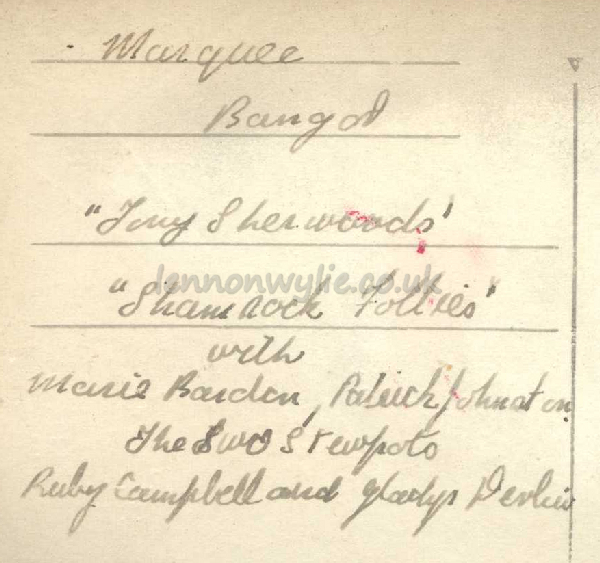 Marquee
Bangor
"Tony Sherwoods'
lennonwylie.co.uk
"Shamrock Follies'
with
Marie Bardon, Patrick Johnston
The Two Stewpots
Ruby Campbell and Gladys Devlin